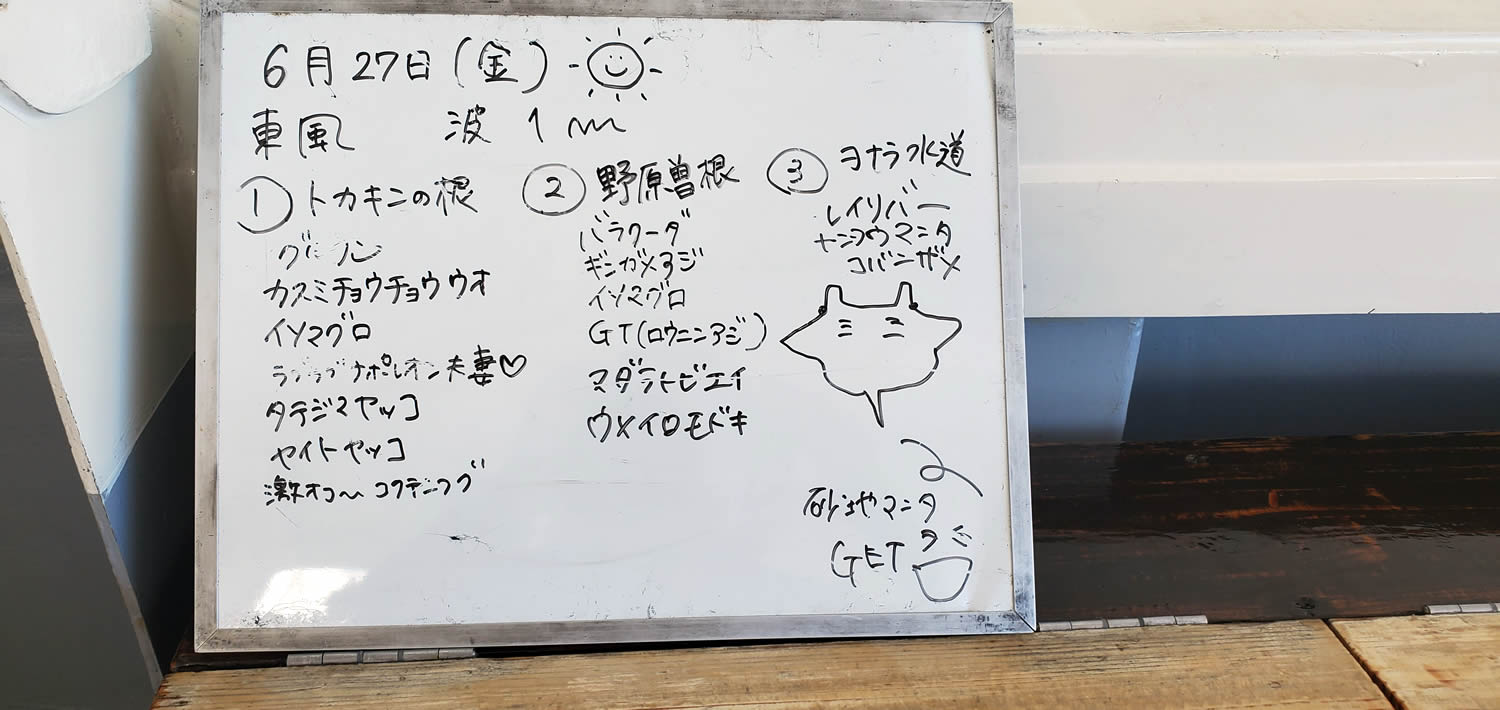 6月27日(金)
東風 波 1m
① トカキンの根
グルクン
カスミチョウチョウウオ
イソマグロ
ラブラブナポレオン夫妻♡
タテジマヤッコ
ヤイトヤッコ
激オコ〜
② 野原曽根
バラクーダ
ギンガメアジ
イソマグロ
GT(ロウニンアジ)
マダラトビエイ
ウメイロモドキ
③ ヨナラ水道
レイリバー
ナンヨウマンタ
コバンザメ
砂地マンタ
GET